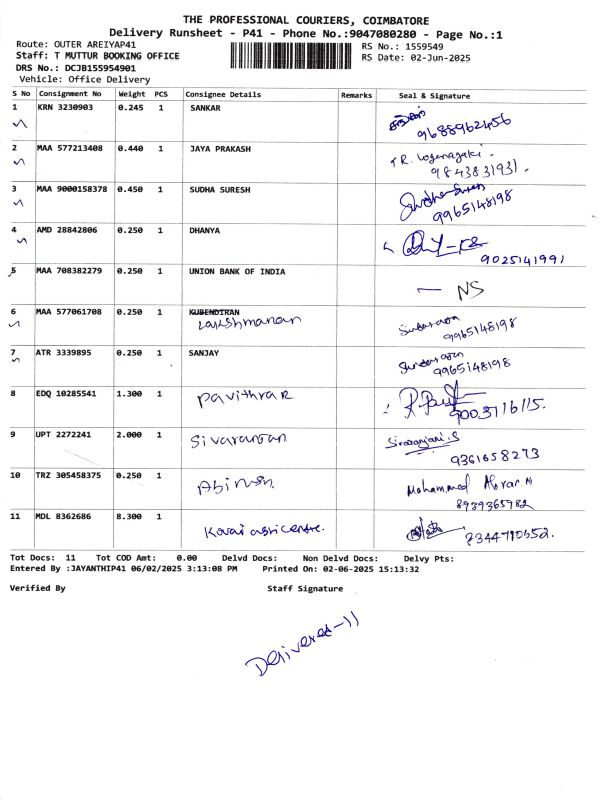 THE PROFESSIONAL COURIERS, COIMBATORE
Delivery Runsheet - P41 - Phone No.:9047080280 - Page No.:1
Route: OUTER AREIYAP41
RS No.: 1559549
Staff: T MUTTUR BOOKING OFFICE
RS Date: 02-Jun-2025
DRS No.: DCJB155954901
Vehicle: Office Delivery
S No Consignment No Weight PCS Consignee Details Remarks Seal & Signature
1 KRN 3230903 0.245 1 SANKAR
9688962456
2 MAA 577213408 0.440 1 JAYA PRAKASH
9843831931.
3 MAA 9000158378 0.450 1 SUDHA SURESH
9965148198
4 AMD 28842806 0.250 1 DHANYA
9025141991
5 MAA 708382279 0.250 1 UNION BANK OF INDIA
— NS
6 MAA 577061708 0.250 1 KUBENDIRAN
Lakshmanan
9965148198
7 ATR 3339895 0.250 1 SANJAY
9965148198
8 EDQ 10285541 1.300 1 Pavithra R
9003116115.
9 UPT 2272241 2.000 1 Sivaranjan
Sivaranjani.S
9361658273
10 TRZ 305458375 0.250 1
Mohammed Abrar N
8939365782
11 MDL 8362686 8.300 1 Kovai agri centre.
Tot Docs: 11 Tot COD Amt: 0.00 Delvd Docs: Non Delvd Docs: Delvy Pts:
Entered By :JAYANTHIP41 06/02/2025 3:13:08 PM Printed On: 02-06-2025 15:13:32
Verified By Staff Signature
Delivered-11